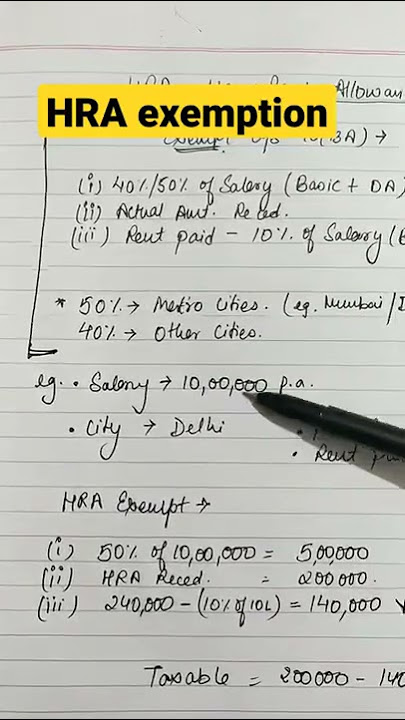 HRA exemption
Allowan
Exempt u/s 10(13A) →
(i) 40%/50% of Salary (Basic + DA)
(ii) Actual Amt. Reced.
(iii) Rent paid - 10% of Salary (
* 50% → Metro Cities. (eg. Mumbai/
40% → Other Cities.
eg. • Salary → 10,00,000 p.a.
• City → Delhi
• Rent
HRA Exempt →
(i) 50% of 10,00,000 = 5,00,000
(ii) HRA Reced. = 200000.
(iii) 240,000 - (10% of 10L) = 140,000
Taxable = 200000 - 140